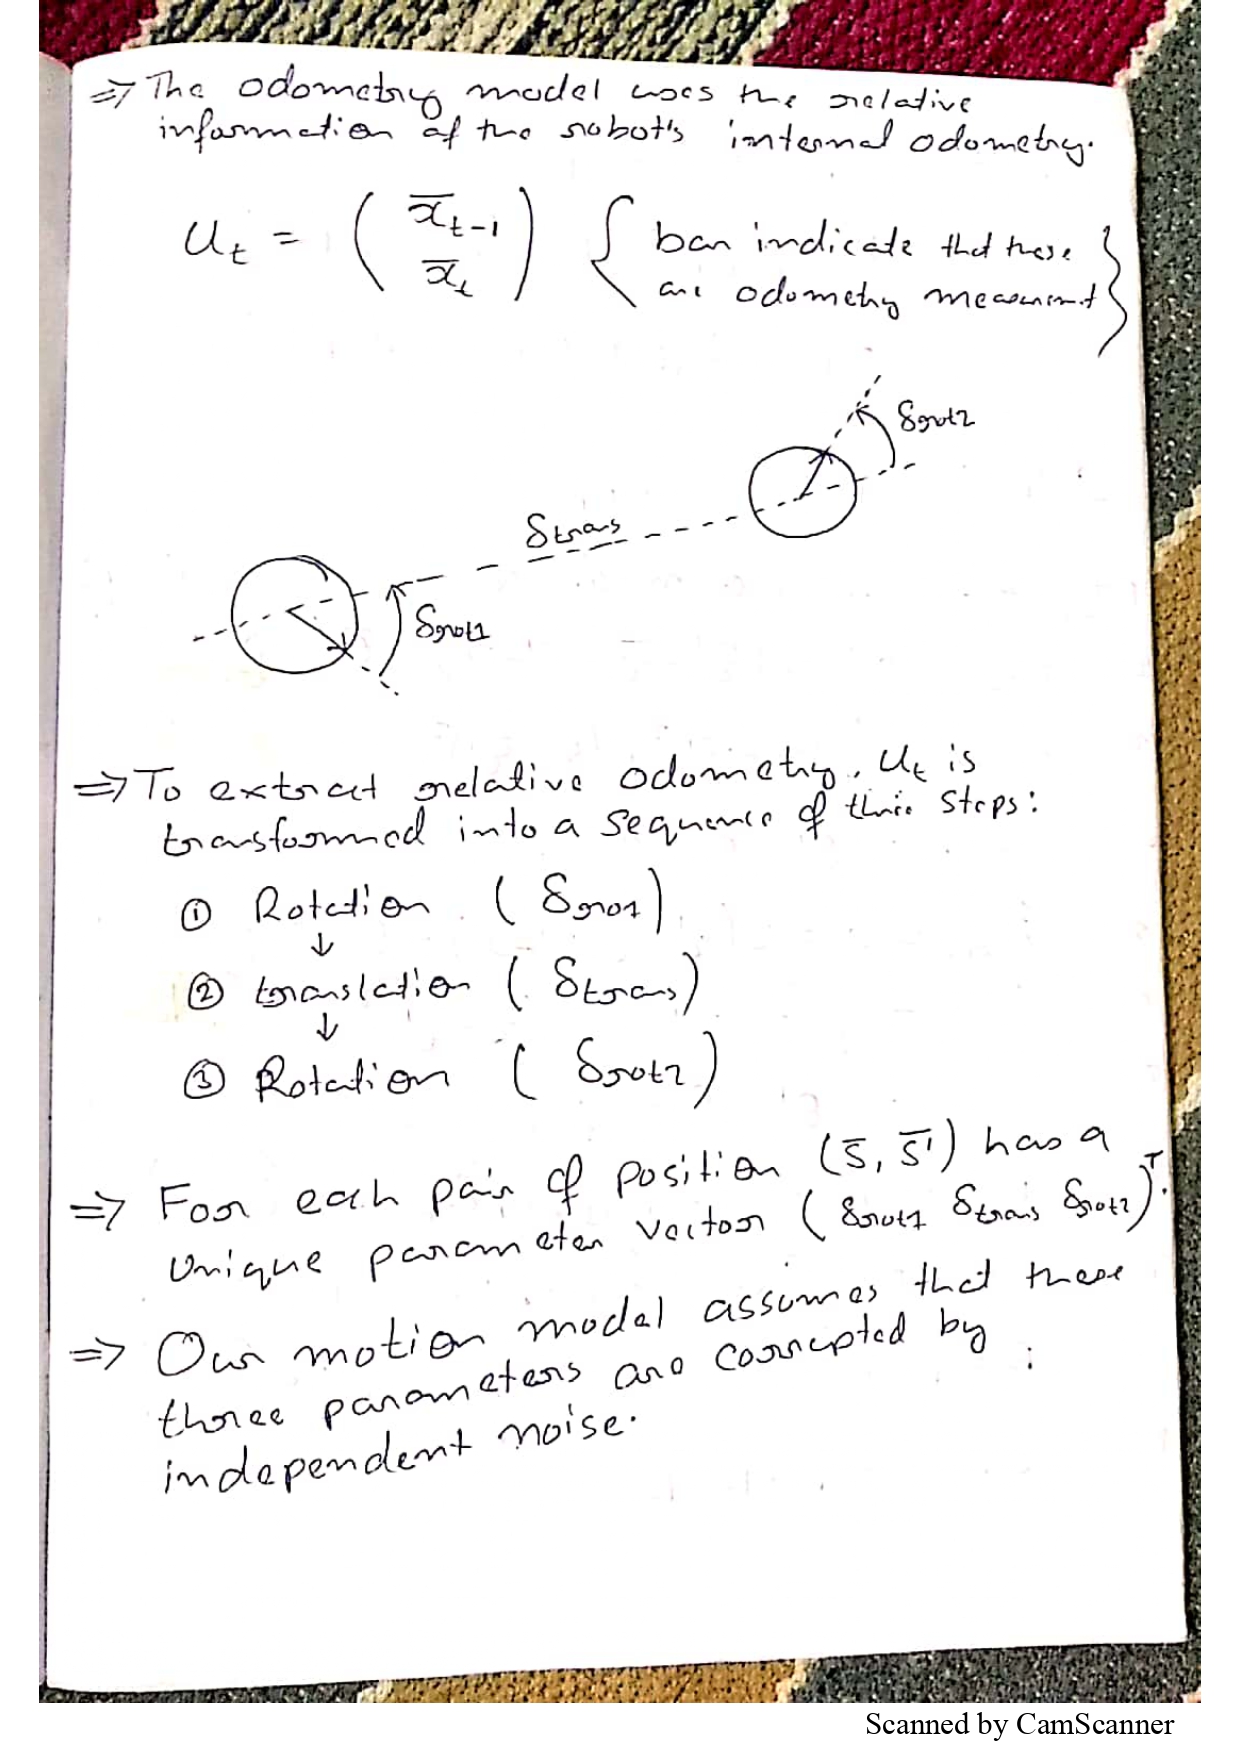 ⇒ The odometry model uses the relative
information of the robot's internal odometry.
u_t = ( x̄_{t-1} x̄_t ) { bar indicate that these
are odometry measurement }
δrot2
δtrans
δrot1
⇒ To extract relative odometry, u_t is
transformed into a sequence of three steps:
① Rotation (δrot1)
↓
② translation (δtrans)
↓
③ Rotation (δrot2)
⇒ For each pair of position (s̄, s̄') has a
unique parameter vector (δrot1 δtrans δrot2)^T.
⇒ Our motion model assumes that these
three parameters are corrupted by :
independent noise.
Scanned by CamScanner